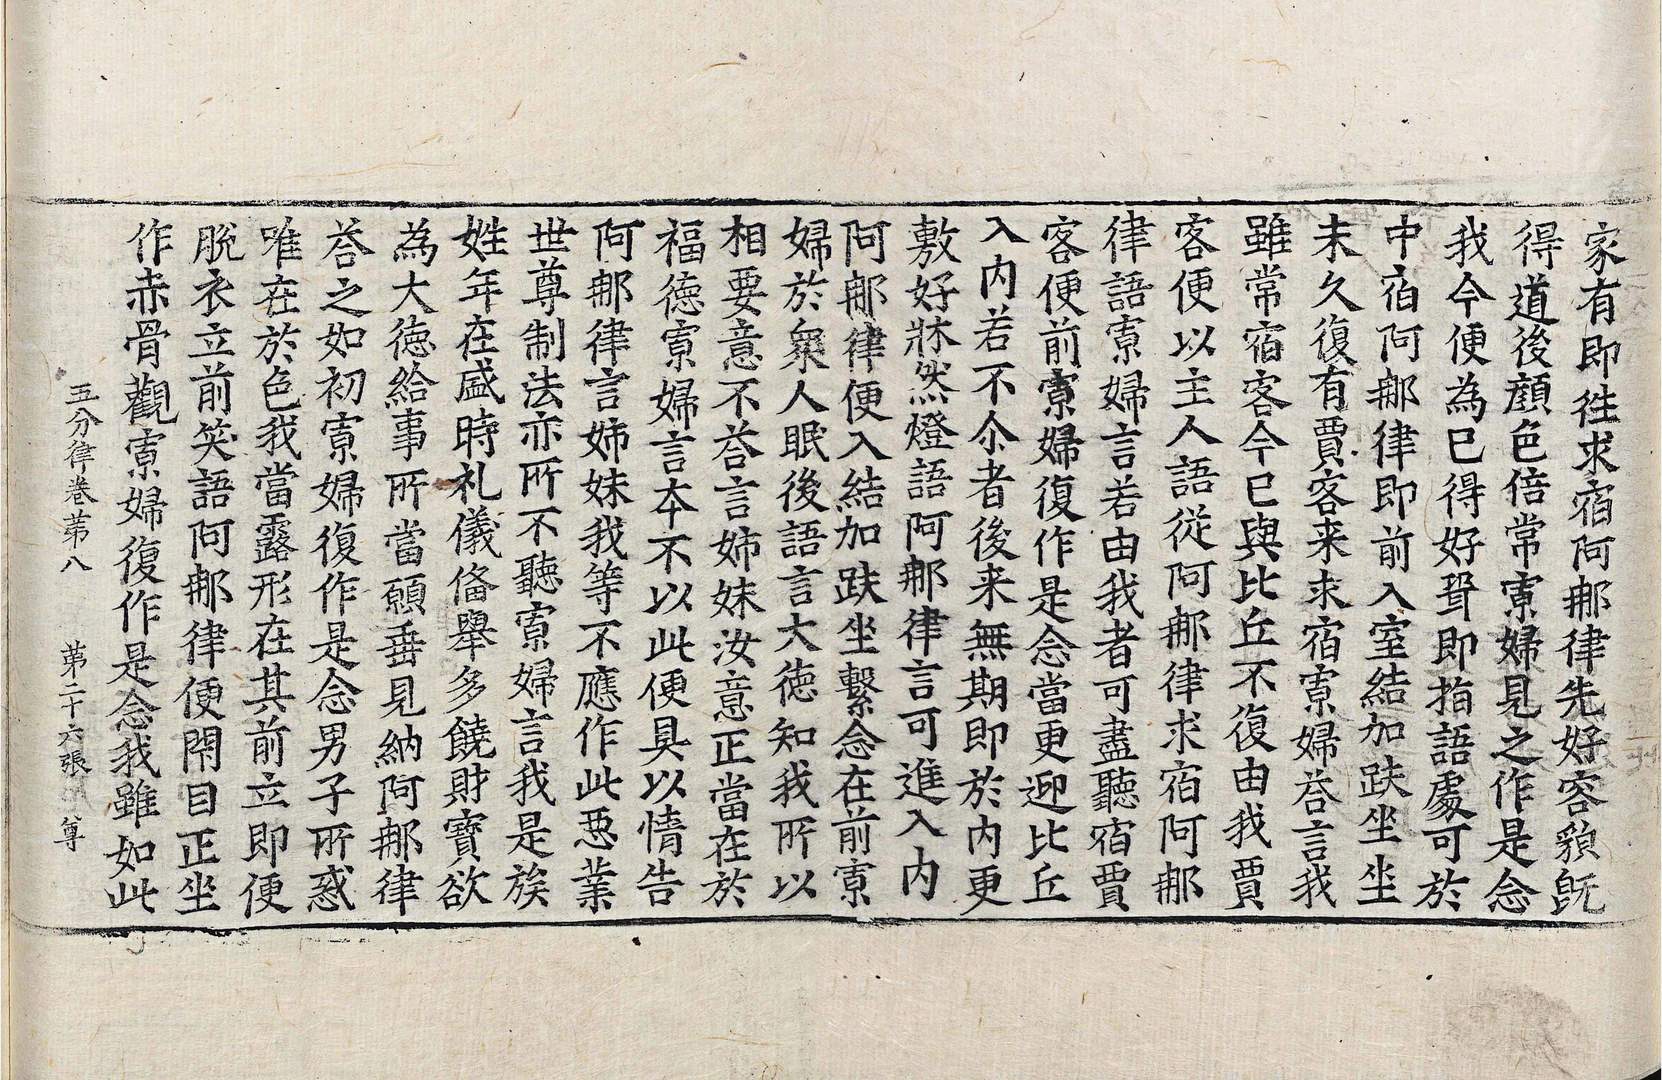 家有即徃求宿阿那律先好容貌旣
得道後顔色倍常寡婦見之作是念
我今便為已得好聟即指語處可於
中宿阿那律即前入室結加趺坐坐
未久復有賈客来求宿寡婦荅言我
雖常宿客今已與比丘不復由我賈
客便以主人語從阿那律求宿阿那
律語寡婦言若由我者可盡聽宿賈
客便前寡婦復作是念當更迎比丘
入内若不尒者後来無期即於内更
敷好牀然燈語阿那律言可進入内
阿那律便入結加趺坐繫念在前寡
婦於衆人眠後語言大徳知我所以
相要意不荅言姉妹汝意正當在於
福徳寡婦言本不以此便具以情告
阿那律言姉妹我等不應作此惡業
世尊制法亦所不聽寡婦言我是族
姓年在盛時礼儀俻舉多饒財寶欲
為大徳給事所當願垂見納阿那律
荅之如初寡婦復作是念男子所惑
唯在於色我當露形在其前立即便
脫衣立前笑語阿那律便閇目正坐
作赤骨觀寡婦復作是念我雖如此
五分律卷苐八 苐二十六張 尊